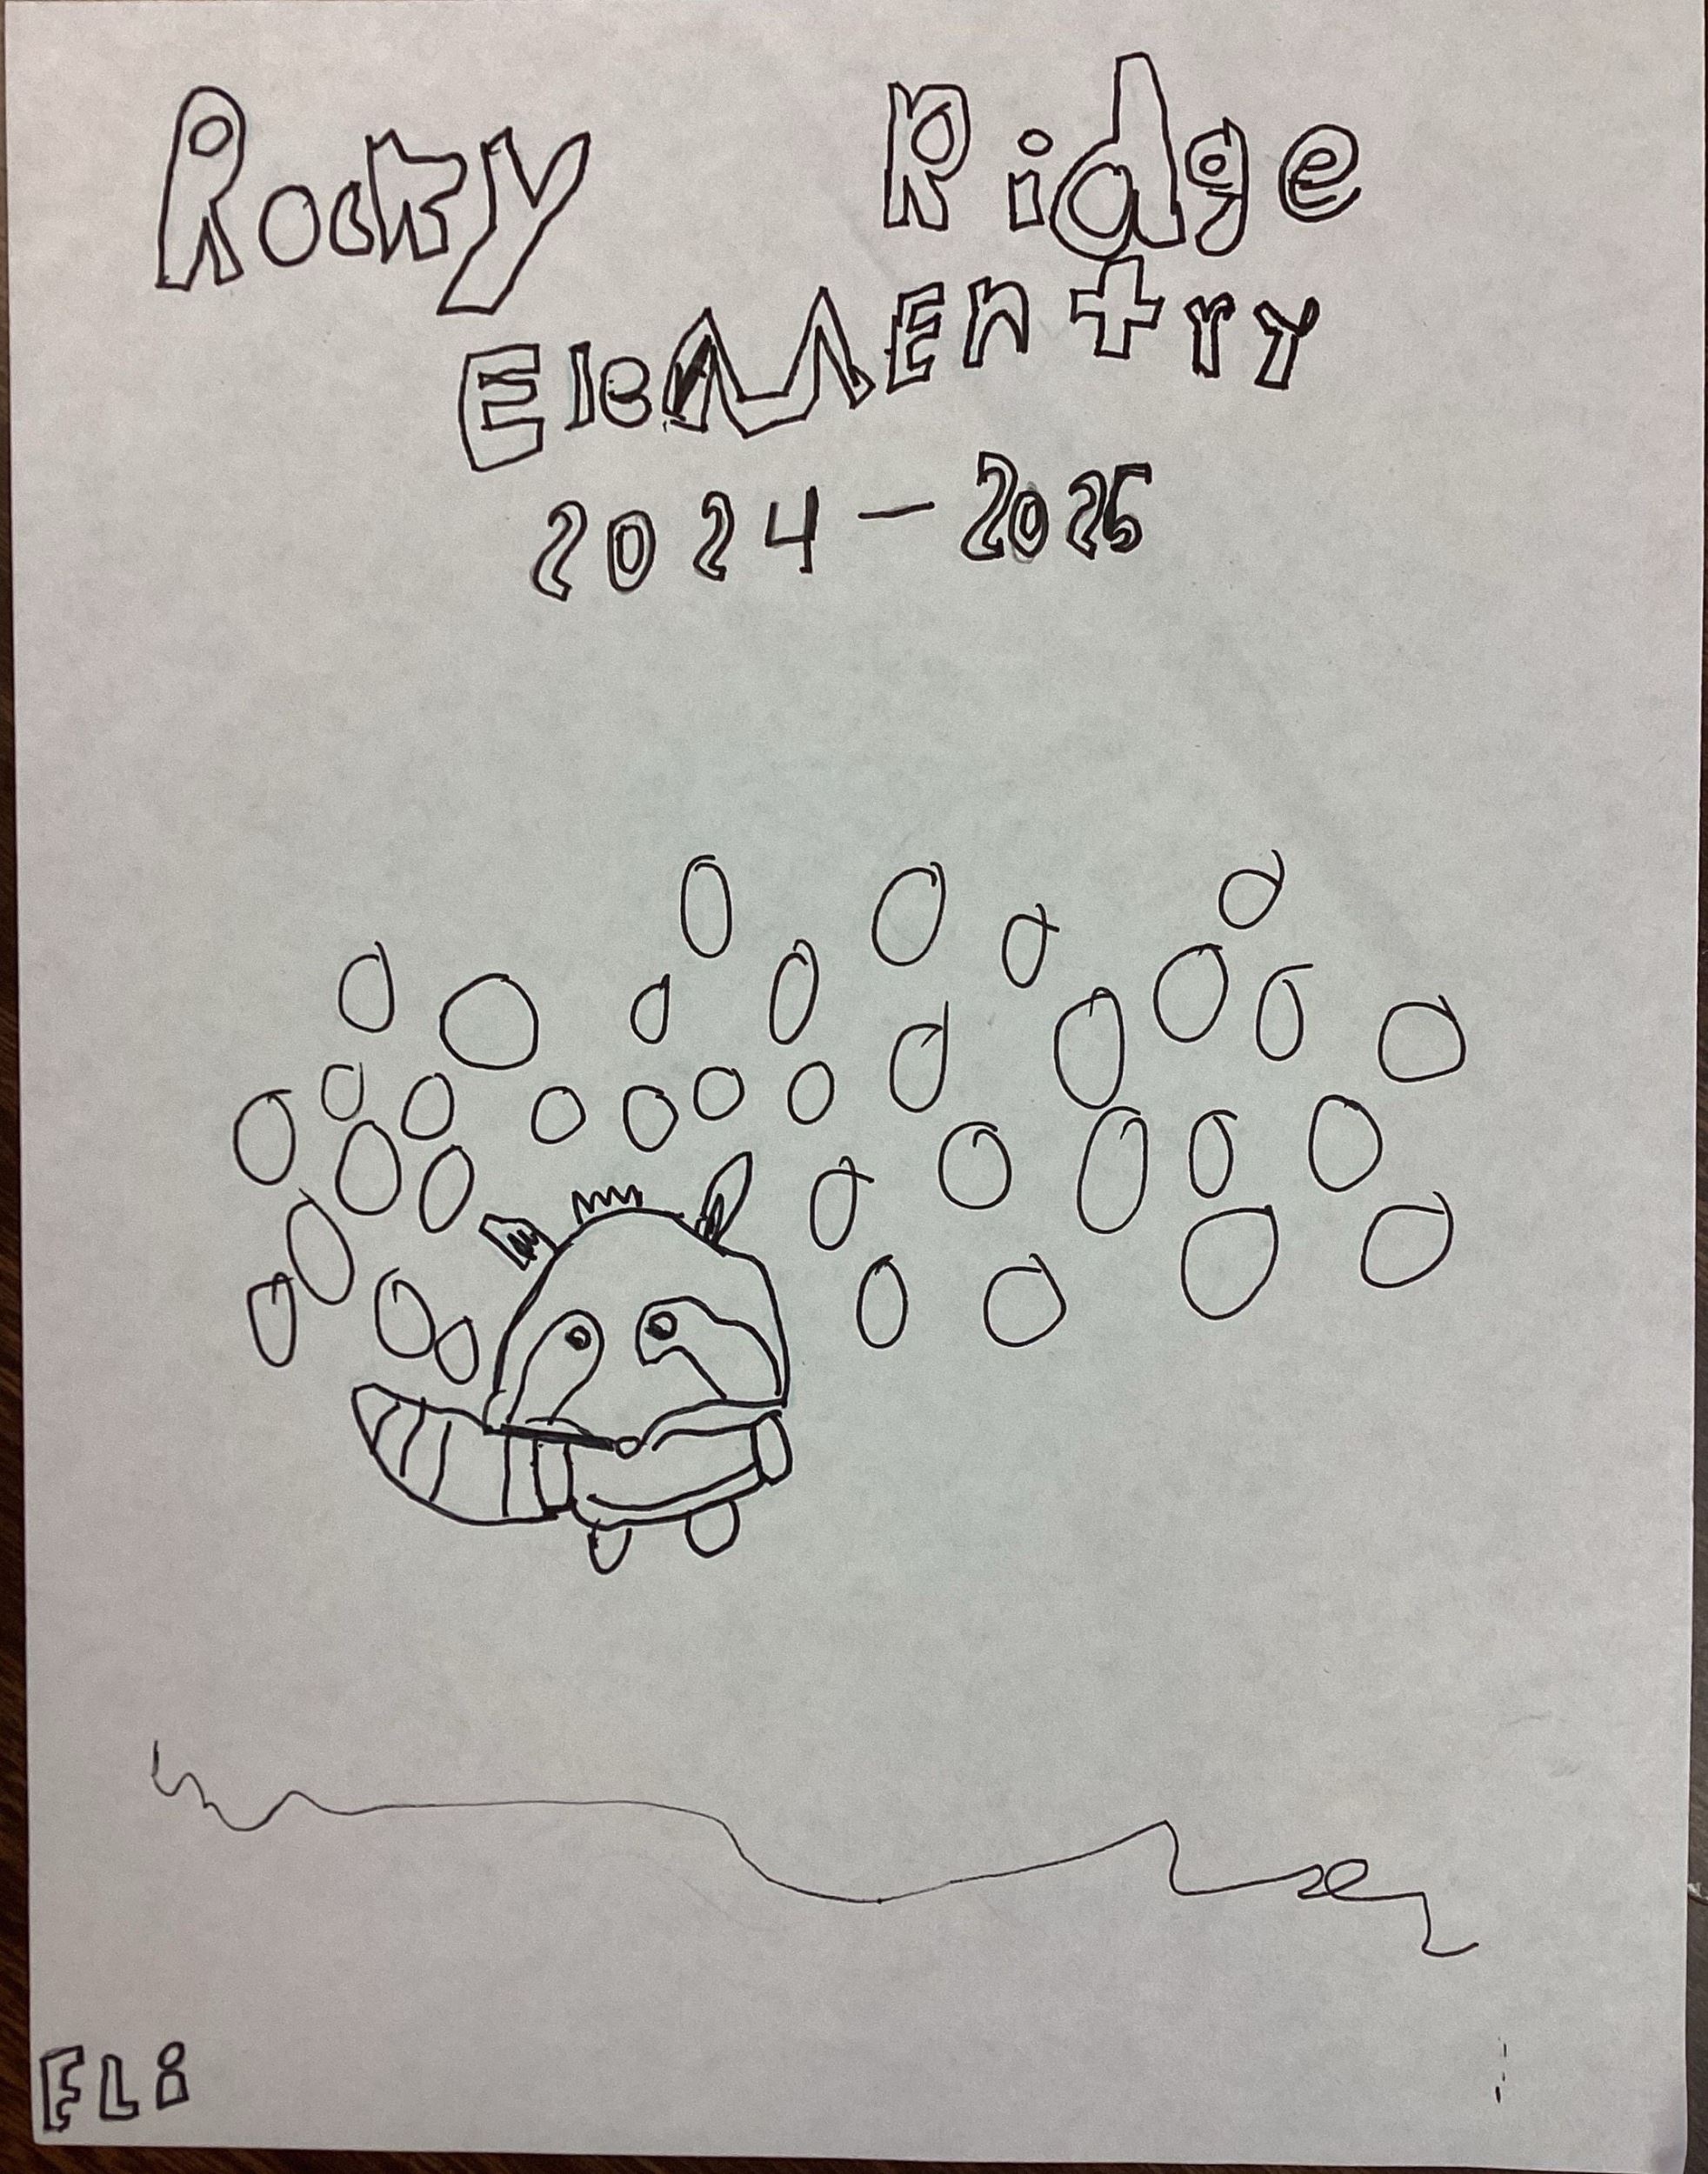 Rocky Ridge
ElemEntry
2024-2025
ELi